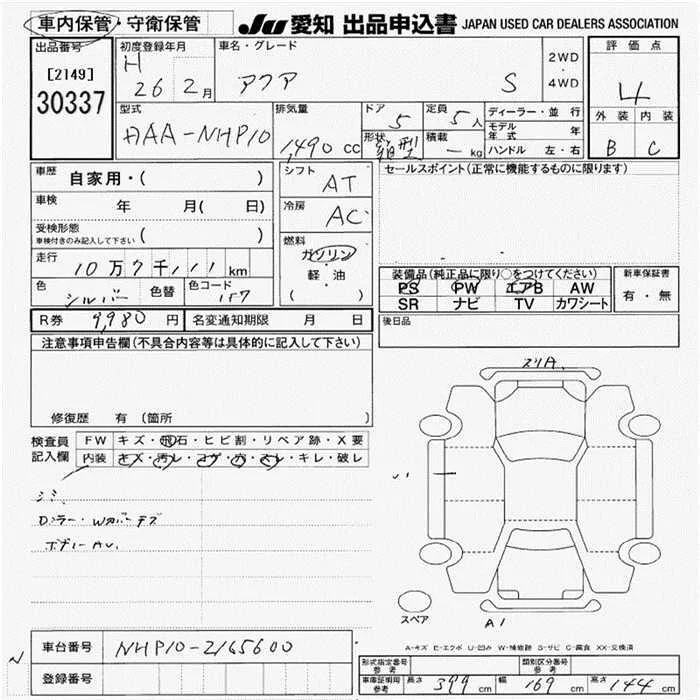 車内保管・守衛保管
JU 愛知 出品申込書 JAPAN USED CAR DEALERS ASSOCIATION
出品番号
[2149]
30337
初度登録年月
H
26 2月
車名・グレード
アクア S
2WD
・
4WD
評価点
4
外装 内装
B C
型式
DAA-NHP10
排気量
1,490 cc
ドア
5
定員
5人
形状
箱型
積載
- kg
ディーラー・並行
モデル年式 年
ハンドル 左・右
車歴
自家用・( )
車検
年 月( 日)
受検形態
車検付きのみ記入して下さい ( )
走行
10万7千111km
色
シルバー
色替
色コード
1F7
シフト
AT
冷房
AC
燃料
ガソリン
・
軽・油
( )
セールスポイント(正常に機能するものに限ります)
装備品(純正品に限り○をつけてください)
PS PW エアB AW
SR ナビ TV カワシート
新車保証書
有・無
後日品
R券 9,980円
名変通知期限 月 日
注意事項申告欄(不具合内容等は具体的に記入して下さい)
修復歴 有(箇所 )
検査員
記入欄
FW キズ・飛石・ヒビ割・リペア跡・X要
内装 キズ・汚レ・コゲ・穴・スレ・キレ・破レ
シミ
Dミラー・Wカバーキズ
ボデーAU
スリA
A1
スペア
A-キズ E-エクボ U-凹み W-補修跡 S-サビ C-腐食 XX-交換済
車台番号
NHP10-2165600
登録番号
形式指定番号
参考
類別区分番号
参考
車庫証明用
参考
長さ 399 cm 幅 169 cm 高さ 144 cm